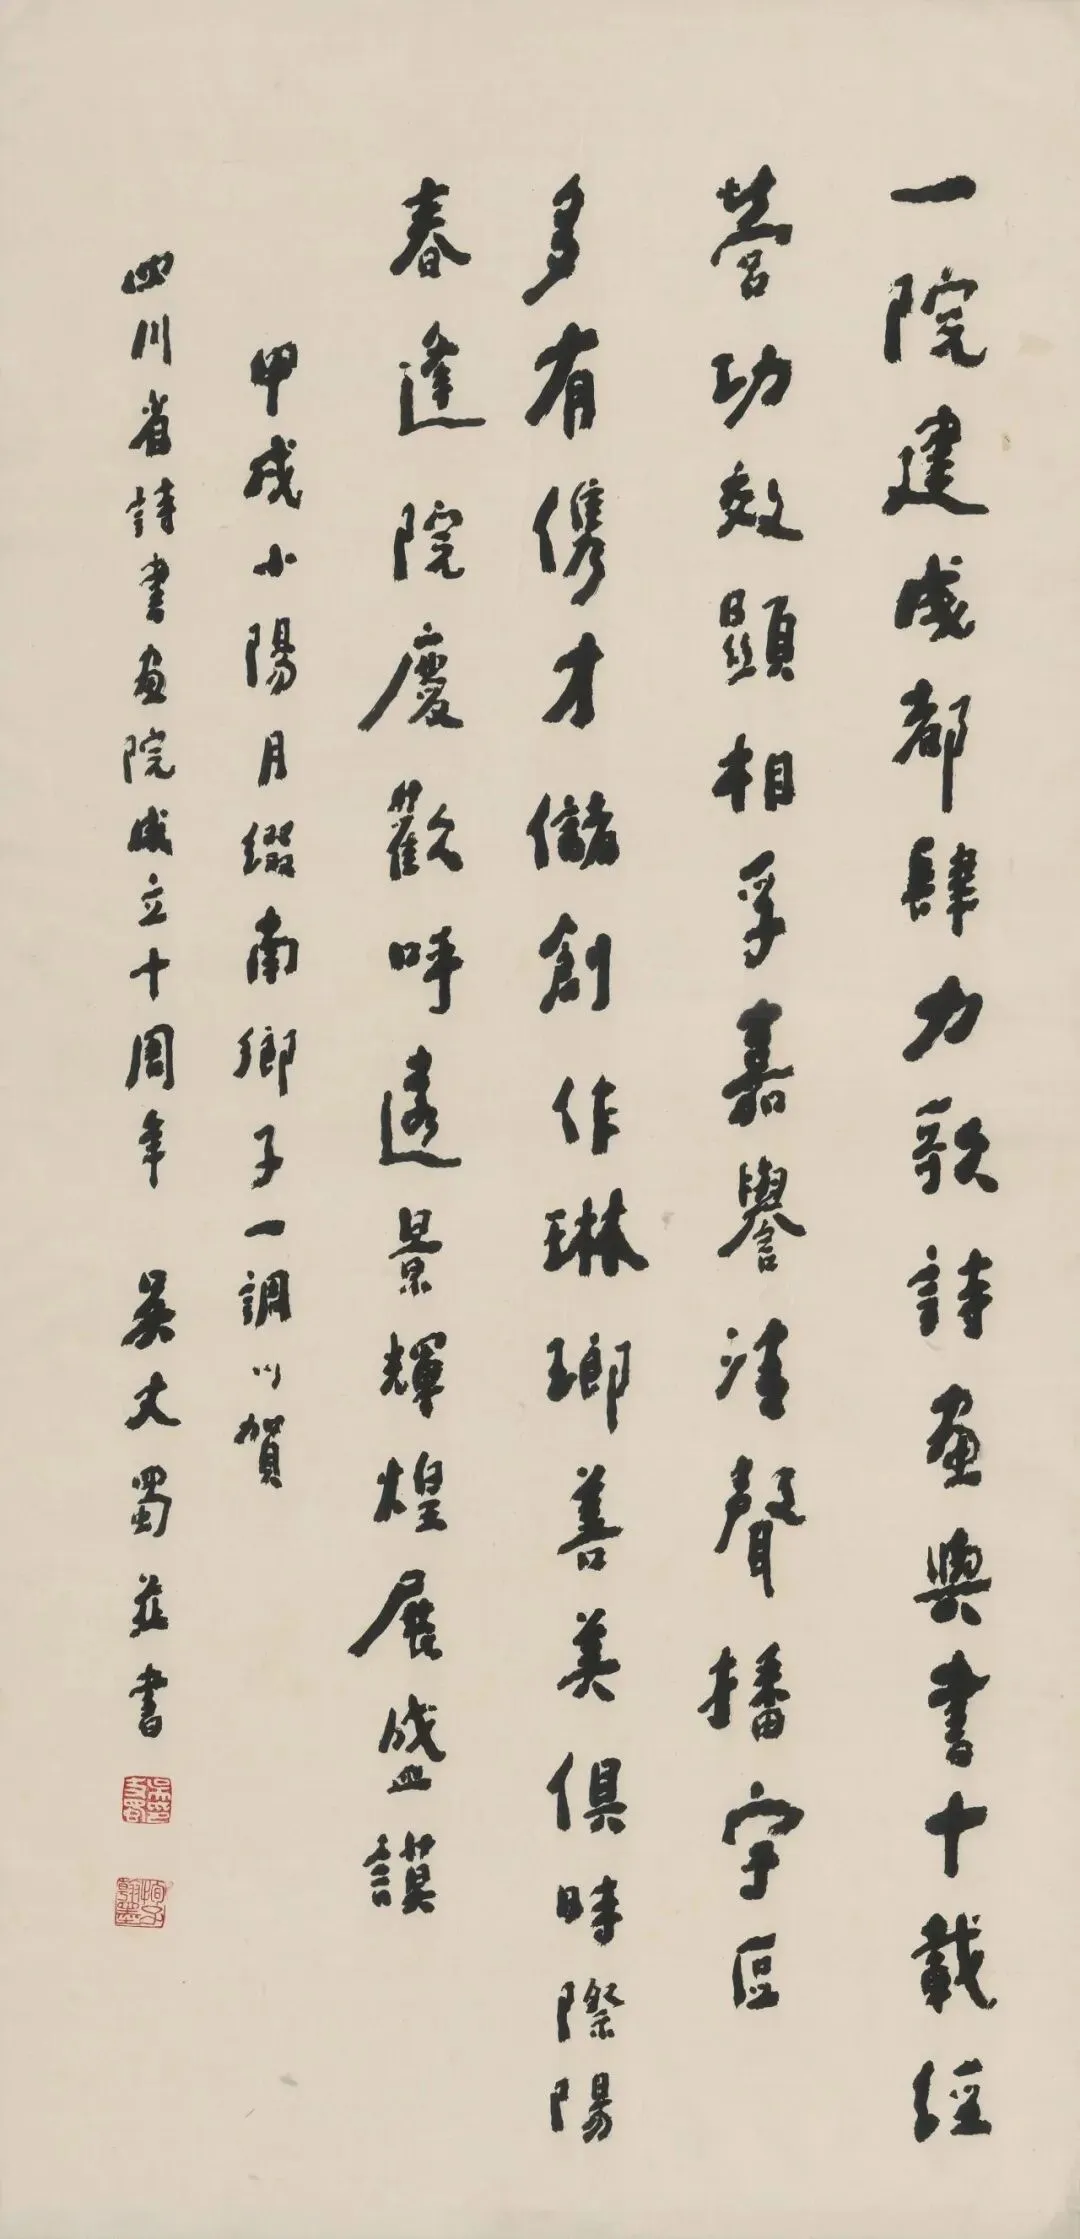 一院建成都肆力歌詩畫與書十載經
營功效顯相孚嘉譽清聲播宇區
多有儁才儲創作琳瑯善美俱時際陽
春逢院慶歡呼遠景輝煌展盛謨
甲戌小陽月綴南鄉子一調以賀
四川省詩書畫院成立十周年 吳丈蜀並書